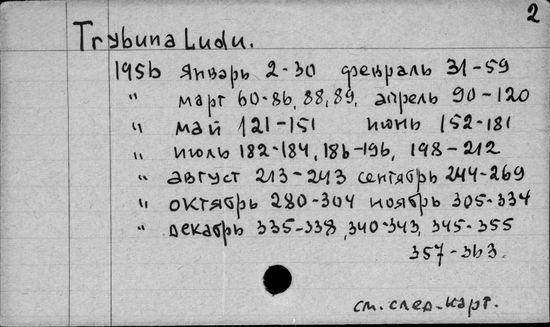 2
Trybuna Ludu.
1956 январь 2-30 февраль 31-59
" март 60-86, 88, 89, апрель 90-120
" май 121-151 июнь 152-181
" июль 182-184, 186-196, 198-212
" август 213-243 сентябрь 244-269
" октябрь 280-304 ноябрь 305-334
" декабрь 335-338, 340-343, 345-355
357-363.
см. след. карт.